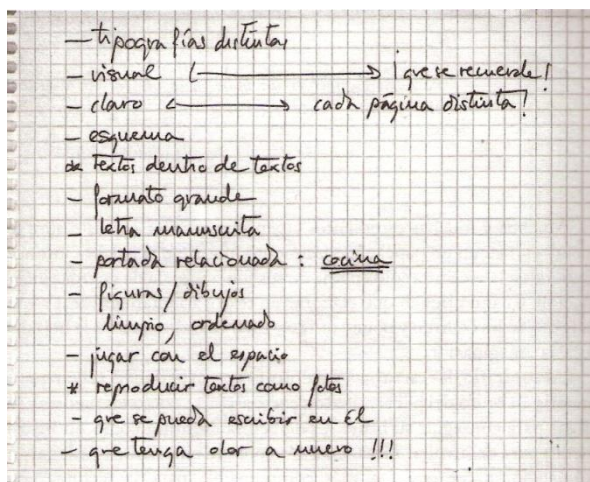 - tipografías distintas
- visual <----> ¡que se recuerde!
- claro <----> cada página distinta!
- esquema
* textos dentro de textos
- formato grande
- letra manuscrita
- portada relacionada : cocina
- figuras / dibujos
limpio, ordenado
- jugar con el espacio
* reproducir textos como fotos
- que se pueda escribir en él
- que tenga olor a nuevo !!!